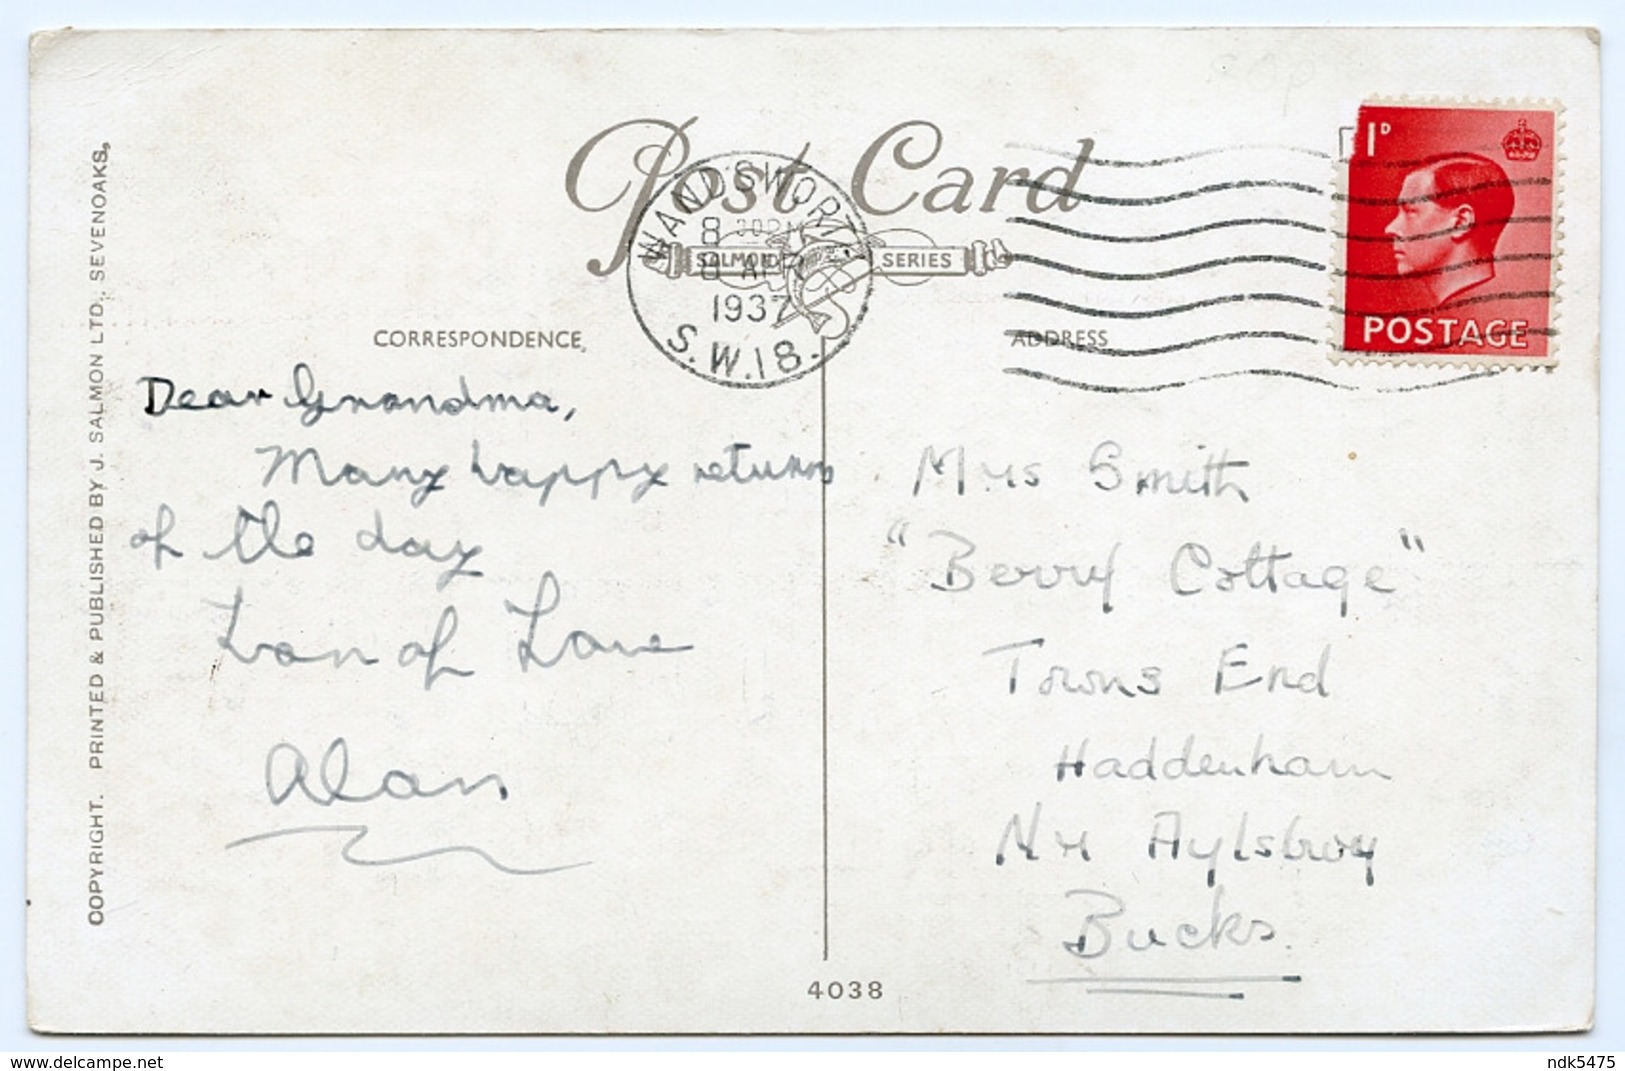 Post Card
SALMON SERIES
WANDSWORTH
8 30PM
8 APR
1937
S.W.18.
1D
POSTAGE
CORRESPONDENCE
ADDRESS
Dear Grandma,
Many happy returns
of the day
Lon of Love
Alan
Mrs Smith
"Berry Cottage"
Towns End
Haddenham
Nr Aylsbury
Bucks.
4038
COPYRIGHT. PRINTED & PUBLISHED BY J. SALMON LTD. SEVENOAKS.
www.delcampe.net
ndk5475